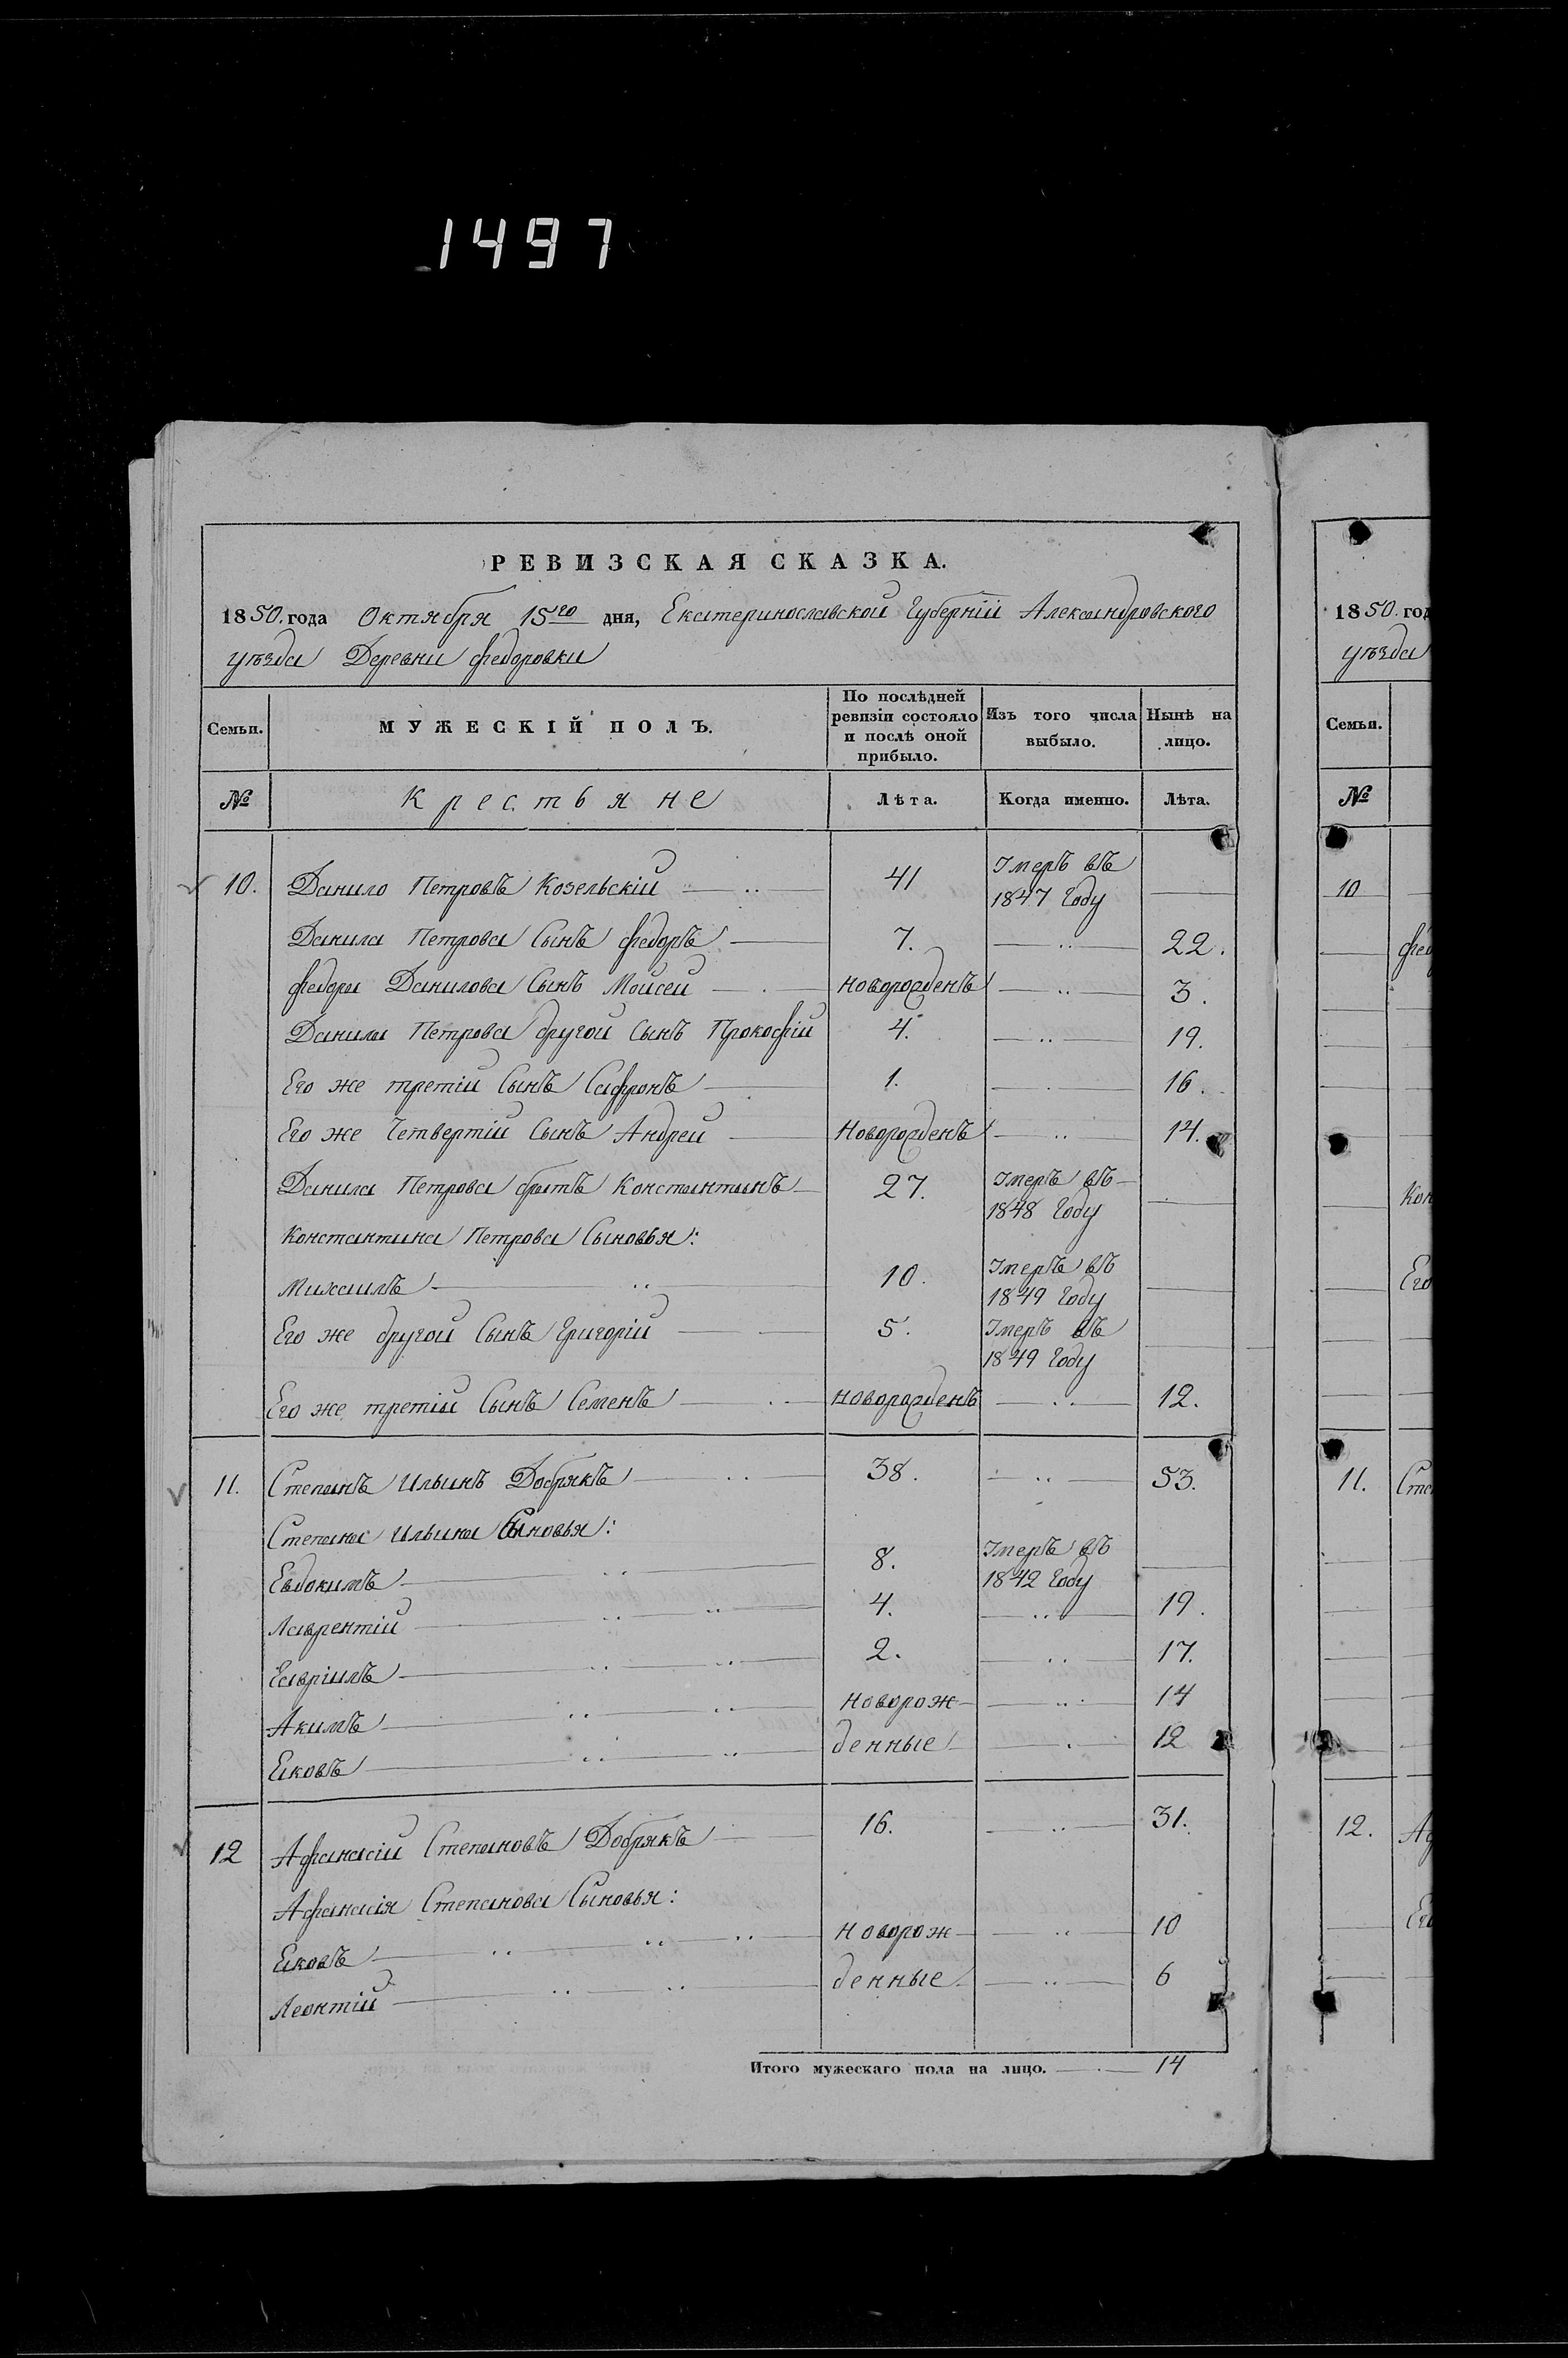 1497
РЕВИЗСКАЯ СКАЗКА.
1850. года Октября 15го дня, Екатеринославской Губерніи Александровского
уѣзда Деревни Федоровки
Семьи. МУЖЕСКІЙ ПОЛЪ. По послѣдней ревизіи состояло и послѣ оной прибыло. Изъ того числа выбыло. Нынѣ на лицо.
№ Крестьяне Лѣта. Когда именно. Лѣта.
10. Данило Петровъ Козельскій 41 Умеръ въ 1847 Году
Данила Петрова Сынъ Федоръ 7. 22.
Федора Данилова Сынъ Моисей новорожденъ 3.
Данила Петрова другой Сынъ Прокофій 4. 19.
Его же третій Сынъ Сафронъ 1. 16.
Его же Четвертій Сынъ Андрей Новорожденъ 14.
Данила Петрова братъ Константинъ 27. Умеръ въ 1848 Году
Константина Петрова Сыновья:
Михаилъ 10. Умеръ въ 1849 Году
Его же другой Сынъ Григорій 5. Умеръ въ 1849 Году
Его же третій Сынъ Семенъ новорожденъ 12.
11. Степанъ Ильинъ Добрякъ 38. 53.
Степана Ильина Сыновья:
Евдокимъ 8. Умеръ въ 1842 Году
Лаврентій 4. 19.
Гавріилъ 2. 17.
Акимъ Новорож- 14
Яковъ денные 12
12 Афанасій Степановъ Добрякъ 16. 31.
Афанасія Степанова Сыновья:
Яковъ Новорож- 10
Леонтій денные 6
Итого мужескаго пола на лицо. 14
1850. год
уѣзда
Семьи.
№
10
Фед
Кон
Его
11. Сте
12. Аф
Его